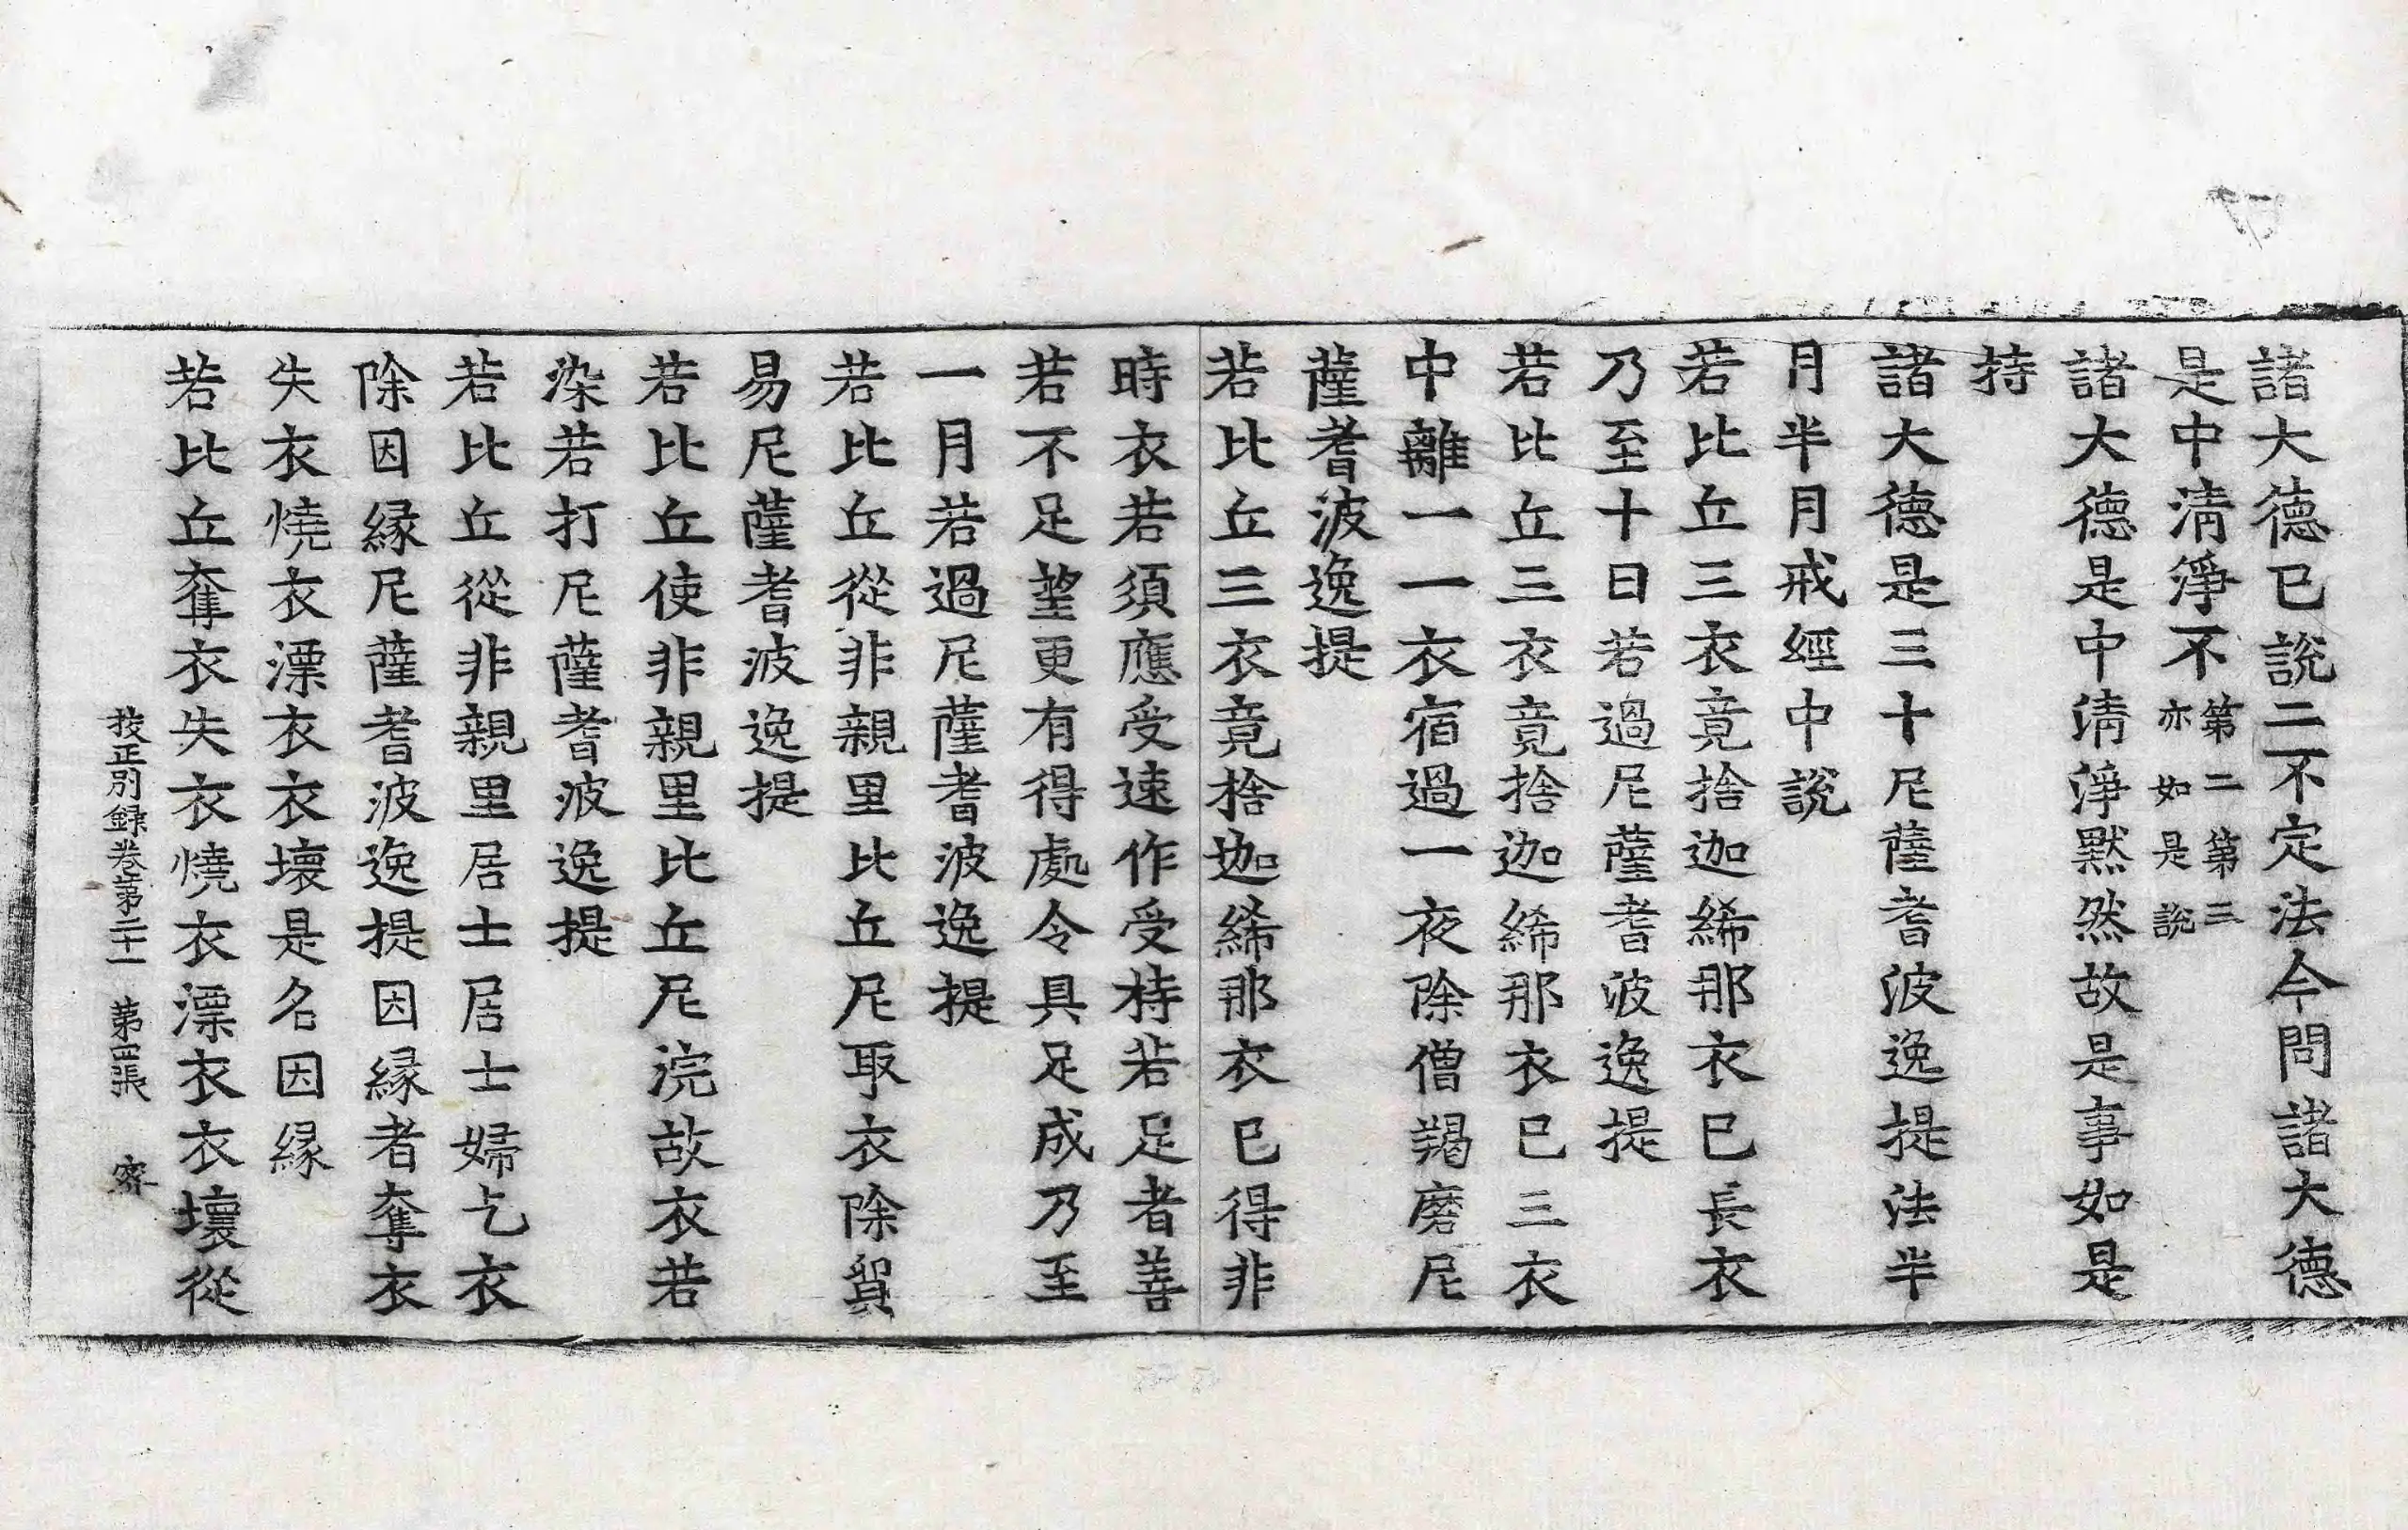 諸大德已說二不定法今問諸大德
是中淸淨不第二第三亦如是說
諸大德是中淸淨默然故是事如是
持
諸大德是三十尼薩耆波逸提法半
月半月戒經中說
若比丘三衣竟捨迦絺那衣已長衣
乃至十日若過尼薩耆波逸提
若比丘三衣竟捨迦絺那衣已三衣
中離一一衣宿過一夜除僧羯磨尼
薩耆波逸提
若比丘三衣竟捨迦絺那衣已得非
時衣若須應受速作受持若足者善
若不足望更有得處令具足成乃至
一月若過尼薩耆波逸提
若比丘從非親里比丘尼取衣除貿
易尼薩耆波逸提
若比丘使非親里比丘尼浣故衣若
染若打尼薩耆波逸提
若比丘從非親里居士居士婦乞衣
除因緣尼薩耆波逸提因緣者奪衣
失衣燒衣漂衣衣壞是名因緣
若比丘奪衣失衣燒衣漂衣衣壞從
挍正別録卷第二十一 第四張